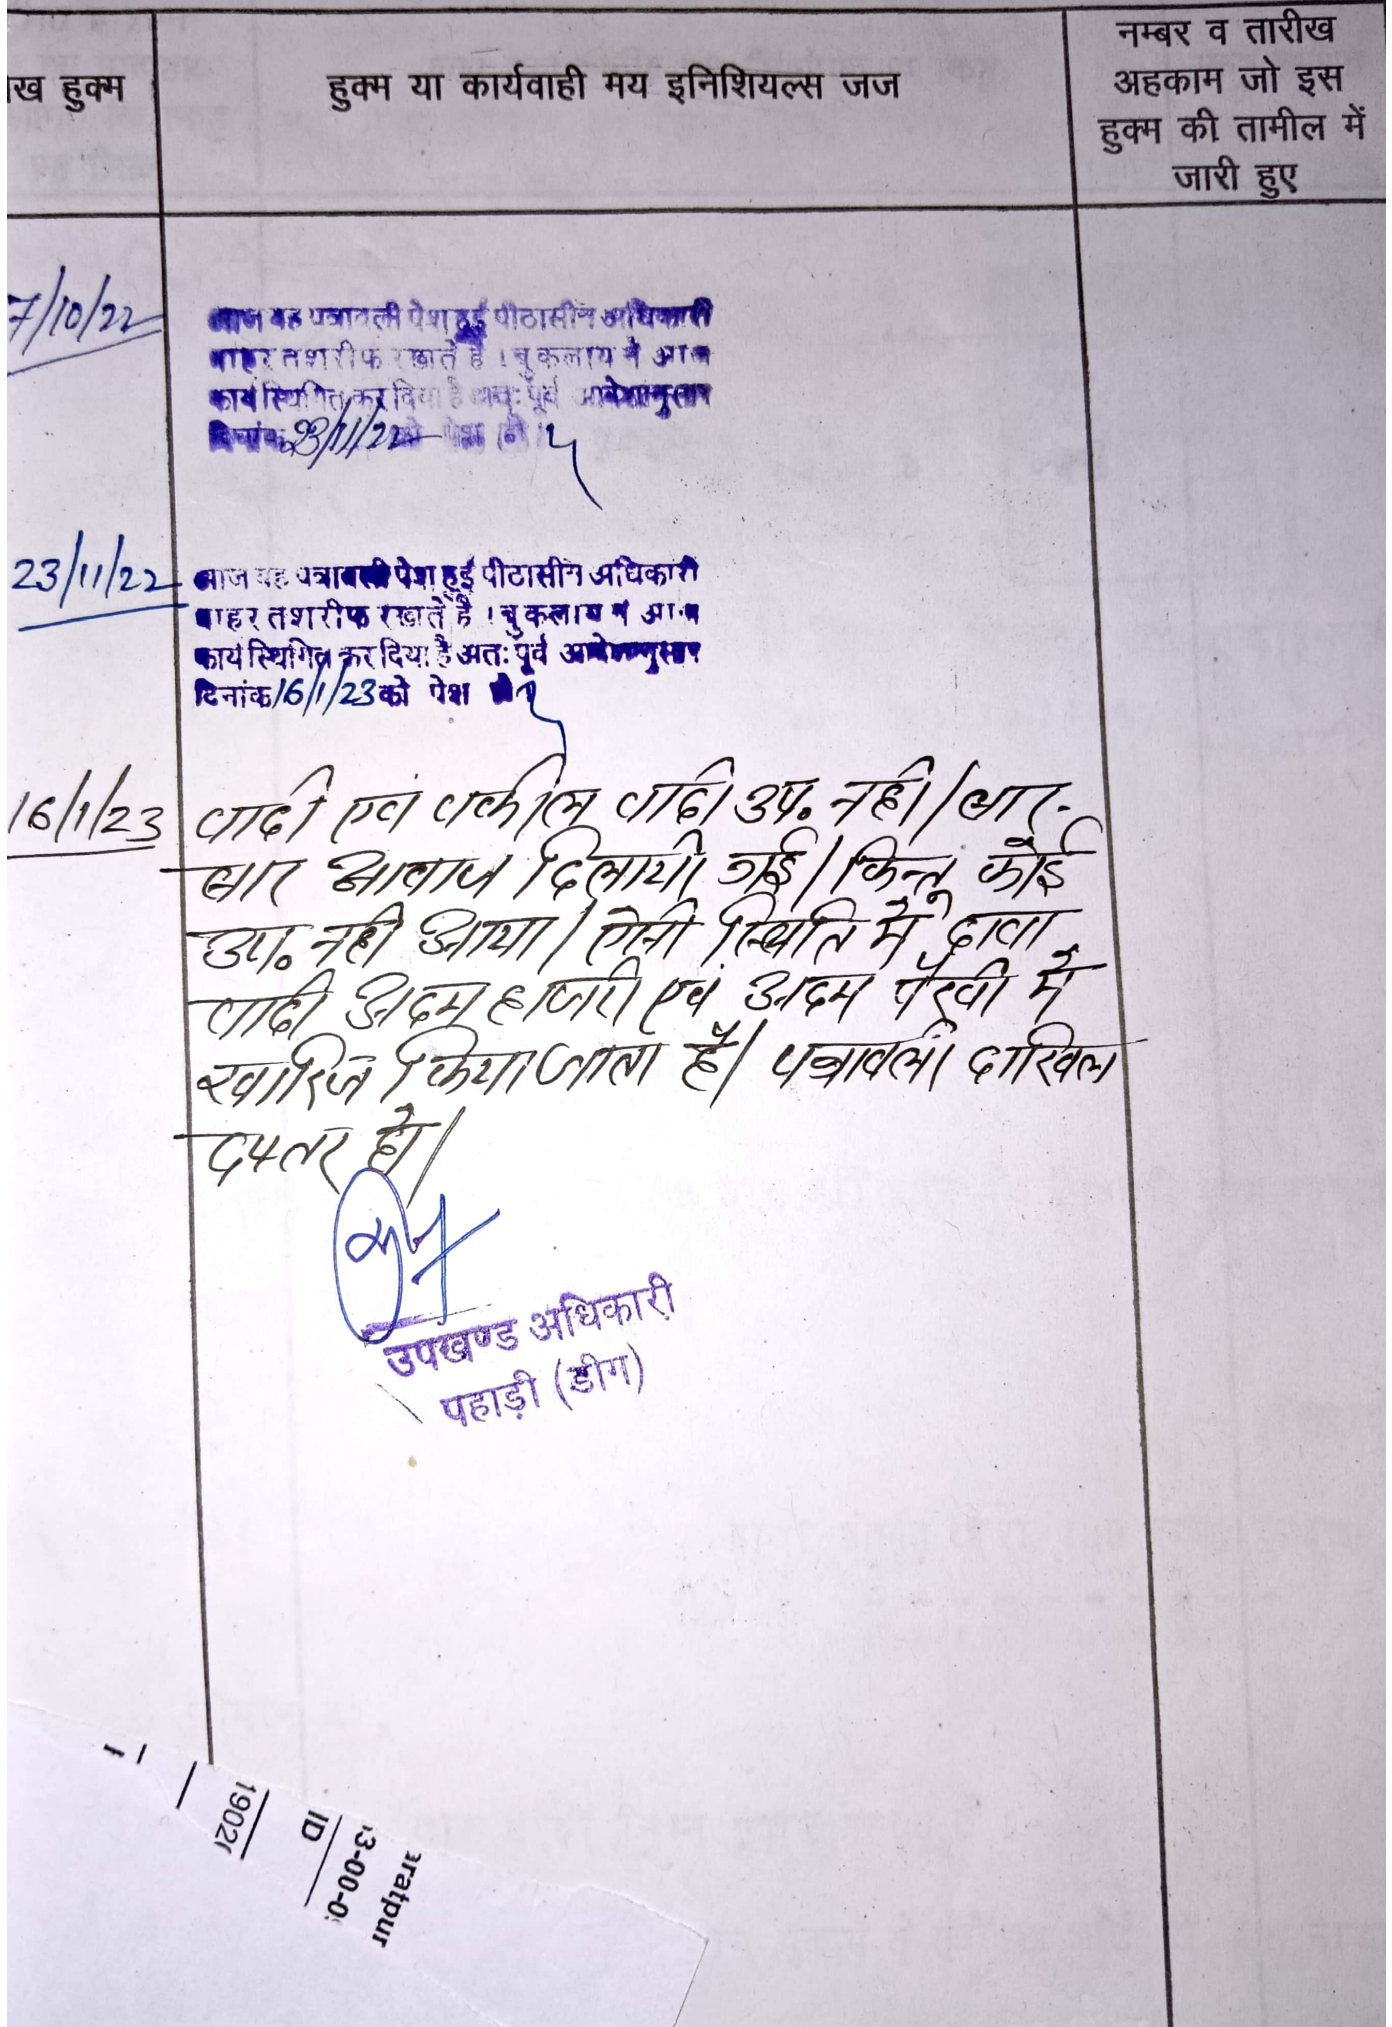 ख हुक्म
हुक्म या कार्यवाही मय इनिशियल्स जज
नम्बर व तारीख
अहकाम जो इस
हुक्म की तामील में
जारी हुए
7/10/22
आज यह पत्रावली पेश हुई पीठासीन अधिकारी
बाहर तशरीफ रखते है । वुकलाय ने आज
कार्य स्थिगित कर दिया है अत: पूर्व आदेशानुसार
दिनांक 23/11/22 को पेश हो
23/11/22
आज यह पत्रावली पेश हुई पीठासीन अधिकारी
बाहर तशरीफ रखते है । वुकलाय ने आज
कार्य स्थिगित कर दिया है अत: पूर्व आदेशानुसार
दिनांक 16/1/23 को पेश हो
16/1/23
वादी एवं वकील वादी उप. नही। बार-
बार आवाज दिलायी गई। किन्तु कोई
उप. नही आया। ऐसी स्थिति मे दावा
वादी अदम हाजरी एवं अदम पैरवी मे
खारिज किया जाता है। पत्रावली दाखिल
दफ्तर हो।
उपखण्ड अधिकारी
पहाड़ी (डीग)
aratpur
3-00-0
ID
1902